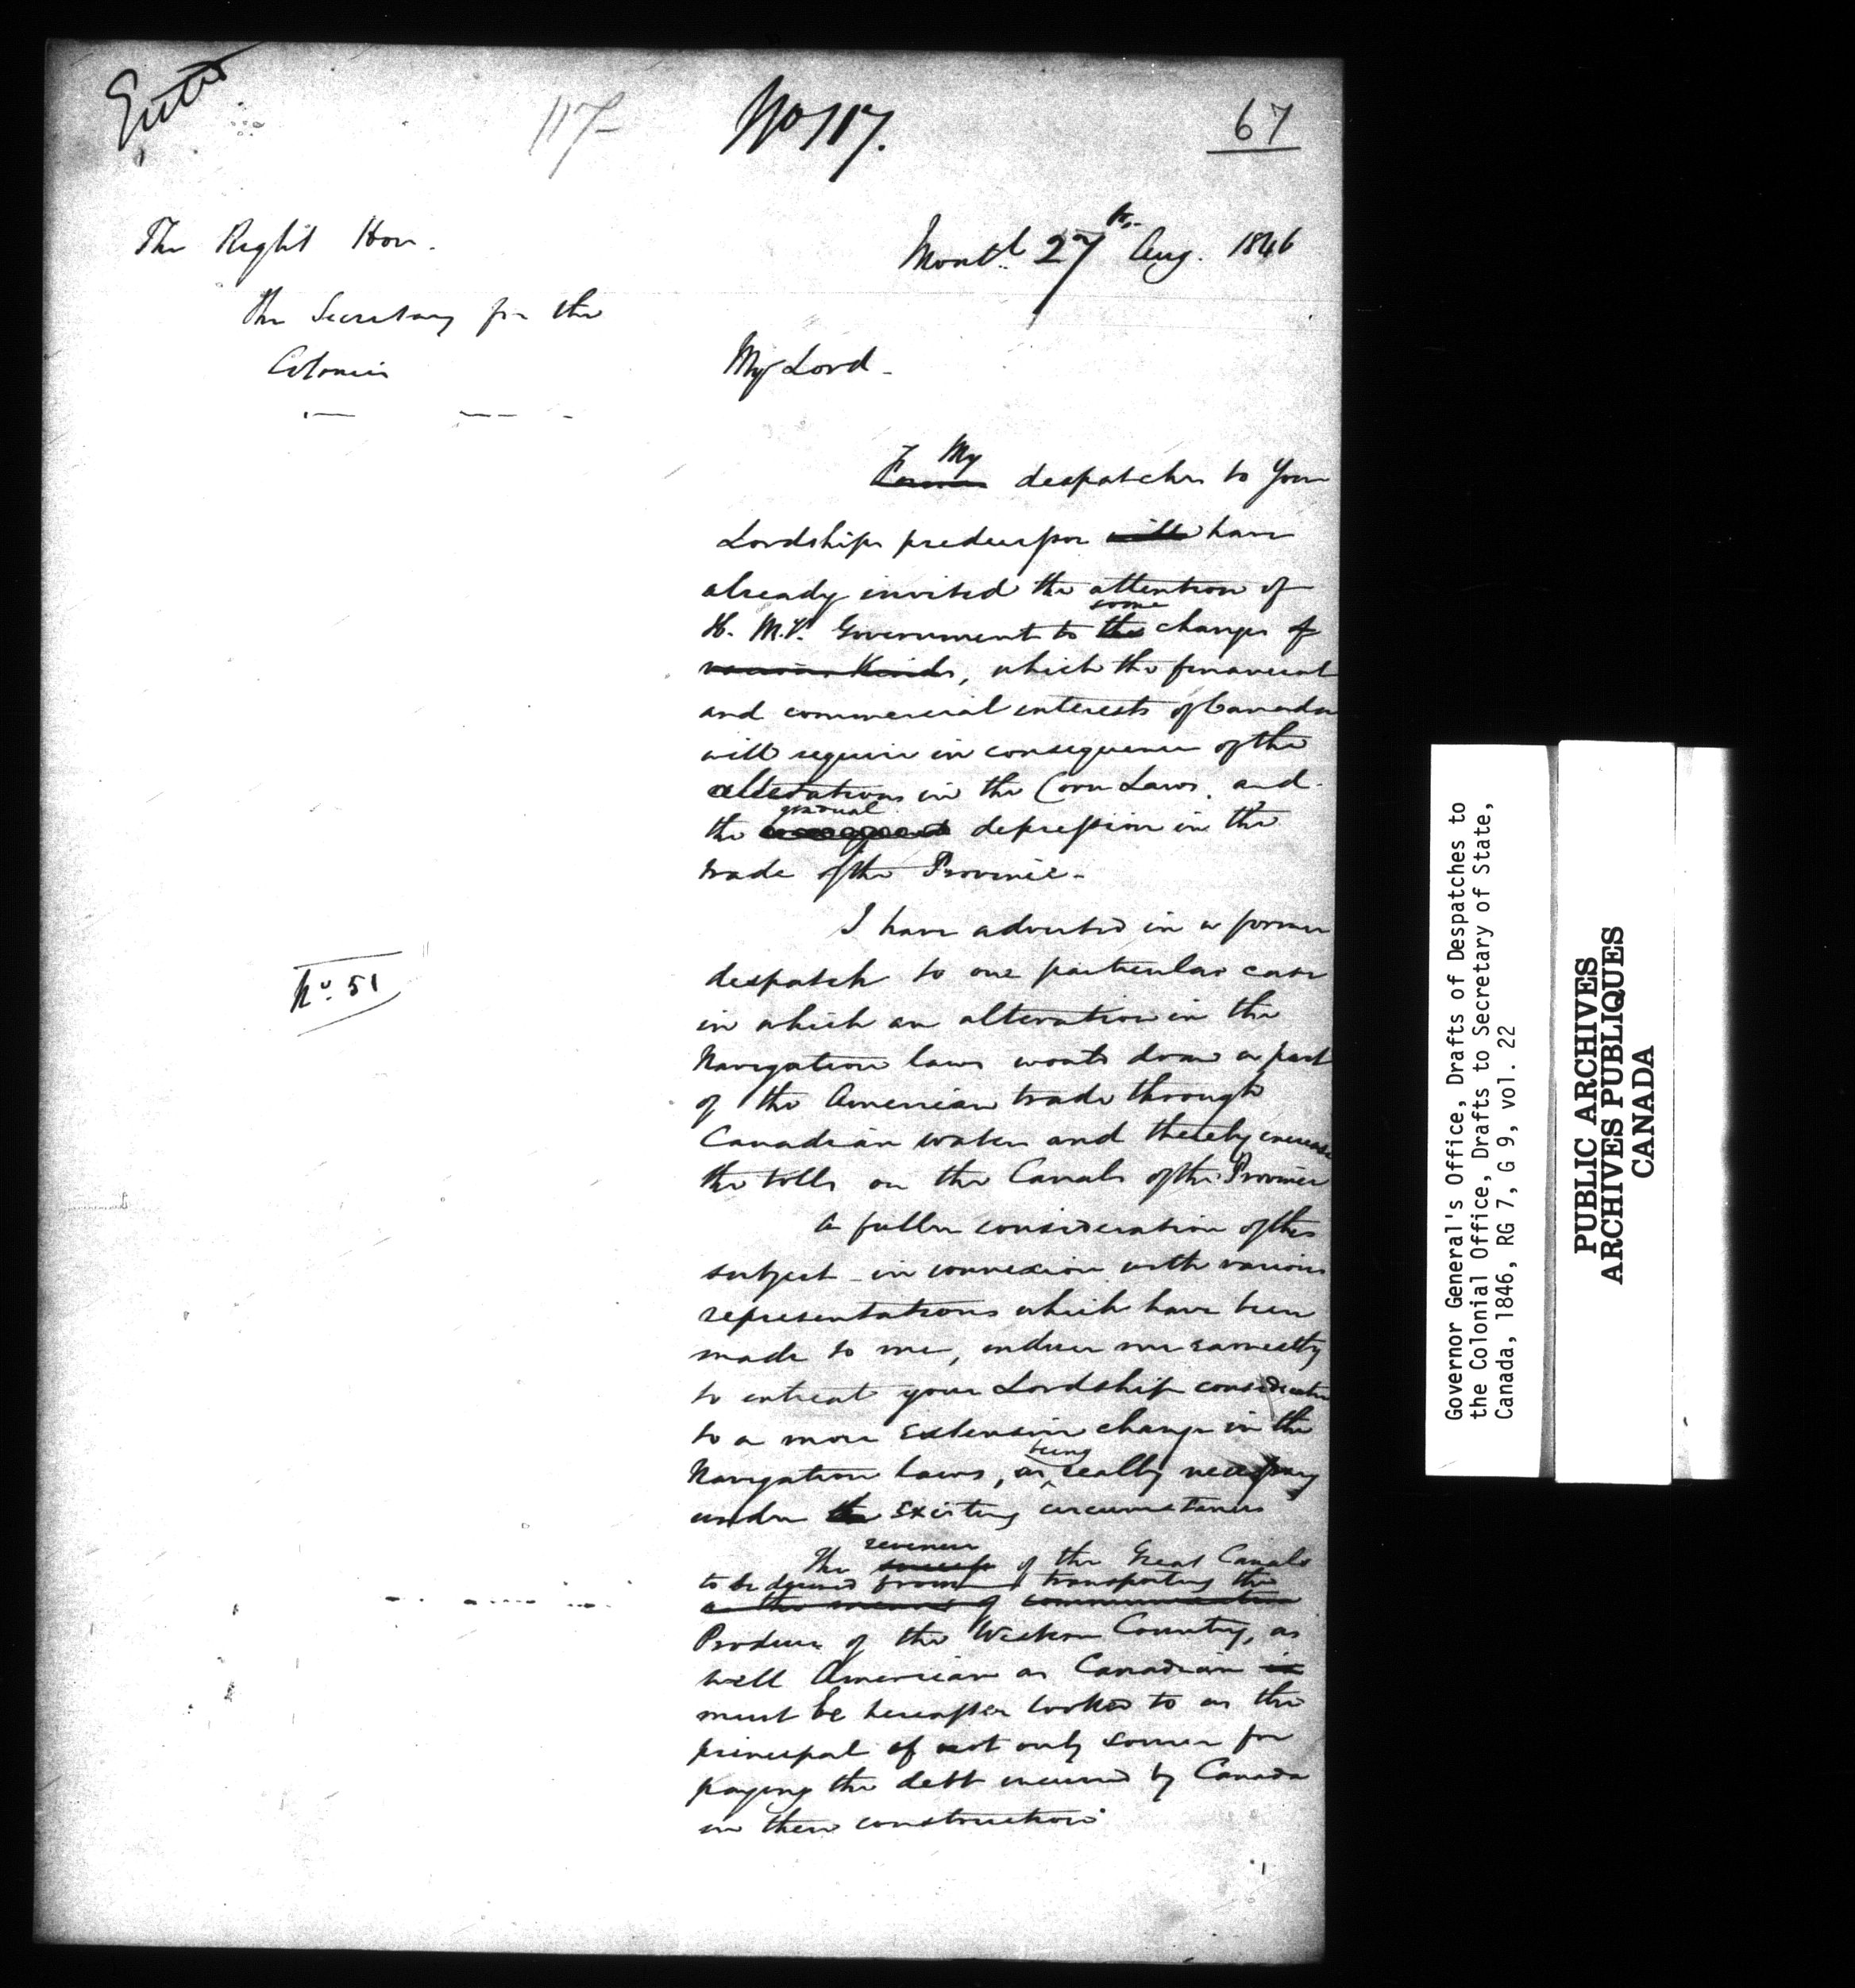 Entd
117
No 117.
67
The Right Hon.
The Secretary for the
Colonies
Montl 27th Aug. 1846
My Lord -
My
Former despatches to Your
Lordships predecessor will have
already invited the attention of
some
H. M.'s Government to the changes of
various kinds, which the financial
and commercial interests of Canada
will require in consequence of the
alterations in the Corn Laws. and
gradual
the depression in the
trade of the Province -
I have adverted in a former
No. 51
despatch to one particular case
in which an alteration in the
Navigation laws would draw a part
of the American trade through
Canadian waters and thereby increase
the tolls on the Canals of the Province
A fuller consideration of this
subject in connexion with various
representations which have been
made to me, induce me earnestly
to entreat your Lordship consideration
to a more extensive change in the
being
Navigation laws, as really necessary
under the existing circumstances
revenue
The success of the Great Canals
to be derived from transporting the
as the means of communication
Produce of the Western Country, as
well American as Canadian is
must be hereafter looked to as the
principal if not only source for
paying the debt incurred by Canada
in their construction
Governor General's Office, Drafts of Despatches to
the Colonial Office, Drafts to Secretary of State,
Canada, 1846, RG 7, G 9, vol. 22
PUBLIC ARCHIVES
ARCHIVES PUBLIQUES
CANADA